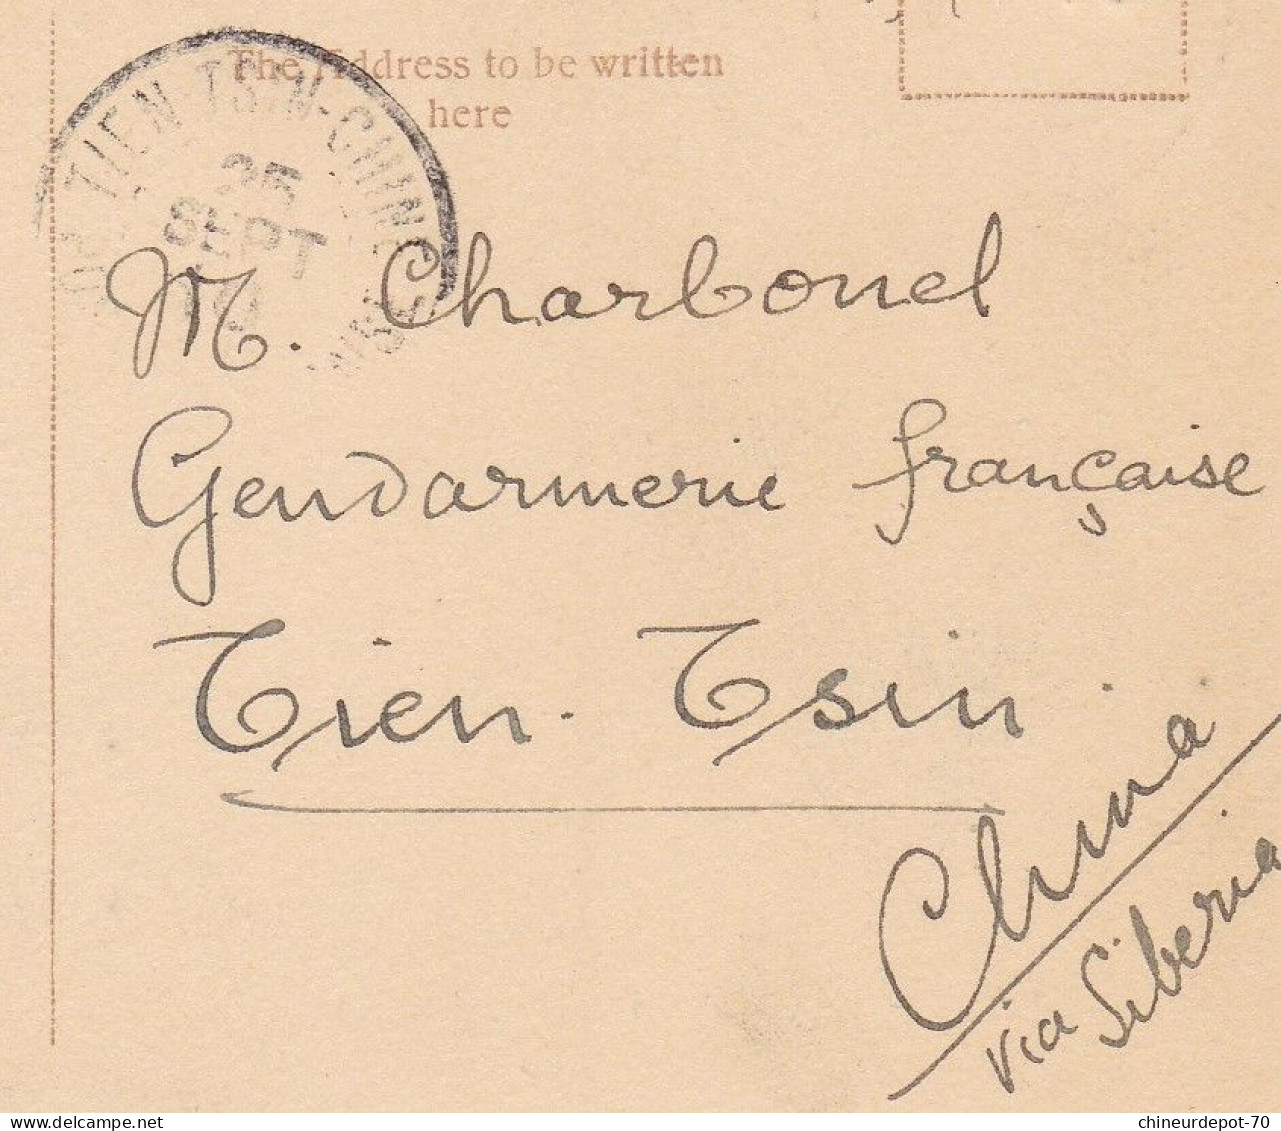 The Address to be written
here
TIEN-TSIN-CHINE
25
SEPT
M. Charbonel
Gendarmerie française
Tien-Tsin
China
via Siberia
chineurdepot-70